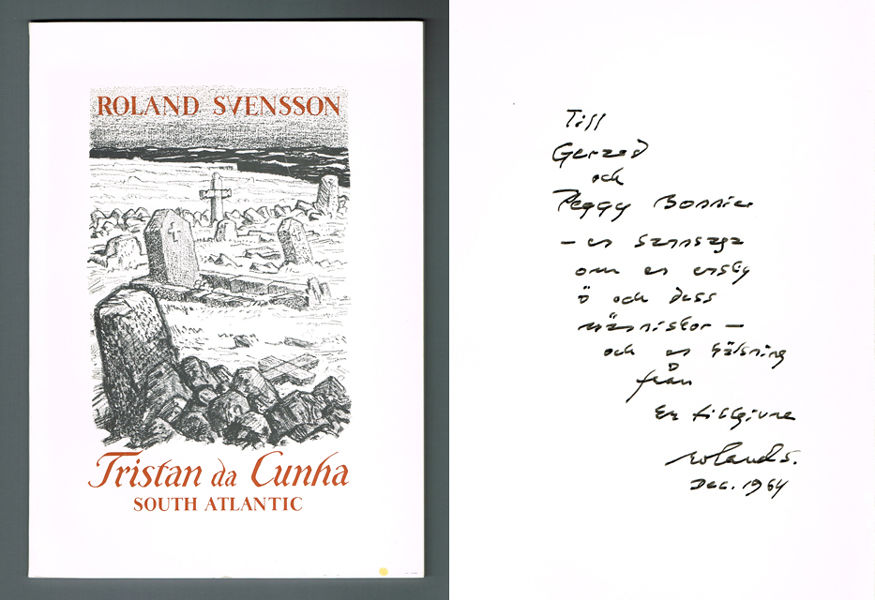 ROLAND SVENSSON
Tristan da Cunha
SOUTH ATLANTIC
Till
Gerard
och
Peggy Bonnier
– en sannsaga
om en enslig
ö och dess
människor –
och en hälsning
från
Er tillgivne
Roland S.
Dec. 1964